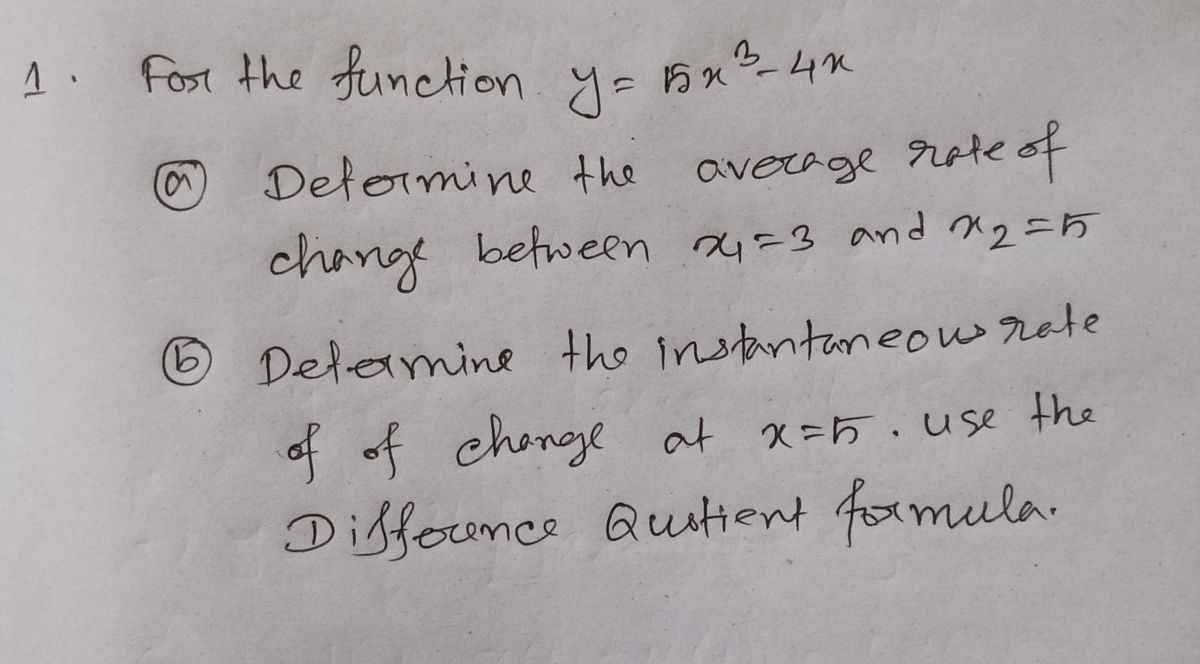 1. For the function y = 5x³-4x
ⓐ Determine the average rate of
change between x₁=3 and x₂=5
ⓑ Determine the instantaneous rate
of of change at x=5. use the
Difference Qustient formula.